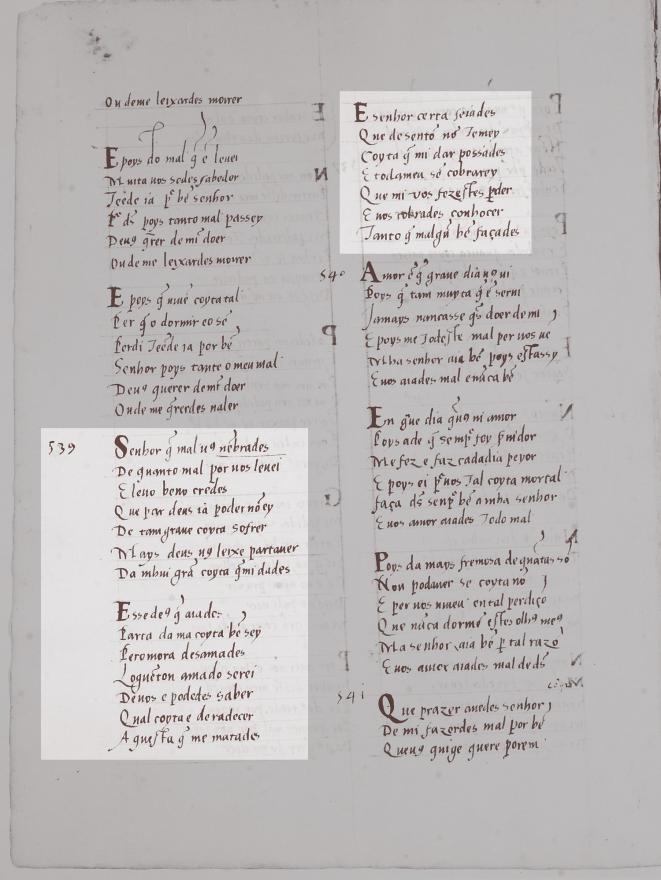 Ou deme leixardes moirer
E poys do mal q̃ ẽ leuei
Muita uos sedes sabedor
Teẽde ia pʳ bẽ senhor
Pʳ ds̃ poys tanto mal passey
Deus q̃rer de mĩ doer
Ou de me leixardes moirer
E poys q̃ uiuẽ coyta tal
Per q̃ o dormir eo sẽ
Perdi Teẽde ia por bẽ
Senhor poys tanto o meu mal
Deus querer demĩ doer
Ou de me q̃rerdes ualer
539
Senhor q̃ mal uꝯ nẽbrades
De quanto mal por uos leuei
E leuo beno credes
Que par deus ia poder nõ ey
De tam graue coyta sofrer
Mays deus uꝯ leixe partauer
Da mhui grã coyta q̃mi dades
E sse deꝯ q̃ aiades
Parta da ma coyta bẽ sey
Pero mora desamades
Logueton amado serei
De uos e podedes saber
Qual coyta e de padecer
Aquesta q̃ me matades
E senhor certa seiades
Que desentõ nõ Temey
Coyta q̃ mi dar possades
E todameu sẽ cobrarey
Que mi uos fezestes pder
E uos cobrades conhocer
Tanto q̃ malgũ bẽ façades
540
Amor ẽ q̃ graue dia uꝯ ui
Poys q̃ tam muyta q̃ ẽ serui
Jamays nuncasse q̃s doer demi
E poys me Todeste mal per uos ue
Mha senhor aia bẽ poys estassy
E uos aiades mal enũca bẽ
En g̃ue dia q̃uꝯ ui amor
Poys ade q̃ semp̃ foy s̃uidor
Me fez e faz cadadia peyor
E poys ei pʳ uos Tal coyta mortal
Faça ds̃ senp̃ bẽ amha senhor
E uos amor aiades Todo mal
Poys da mays fremosa de quãtas sõ
Non podauer se coyta nõ
E per uos uiueu en tal perdiço
Que nũca dormẽ estes olhꝯ meꝯ
Ma senhor aia bẽ p tal razõ
E uos amor aiades mal de ds̃
541
Que prazer auedes senhor
De mi fazerdes mal por bẽ
Queuꝯ quige quere porem